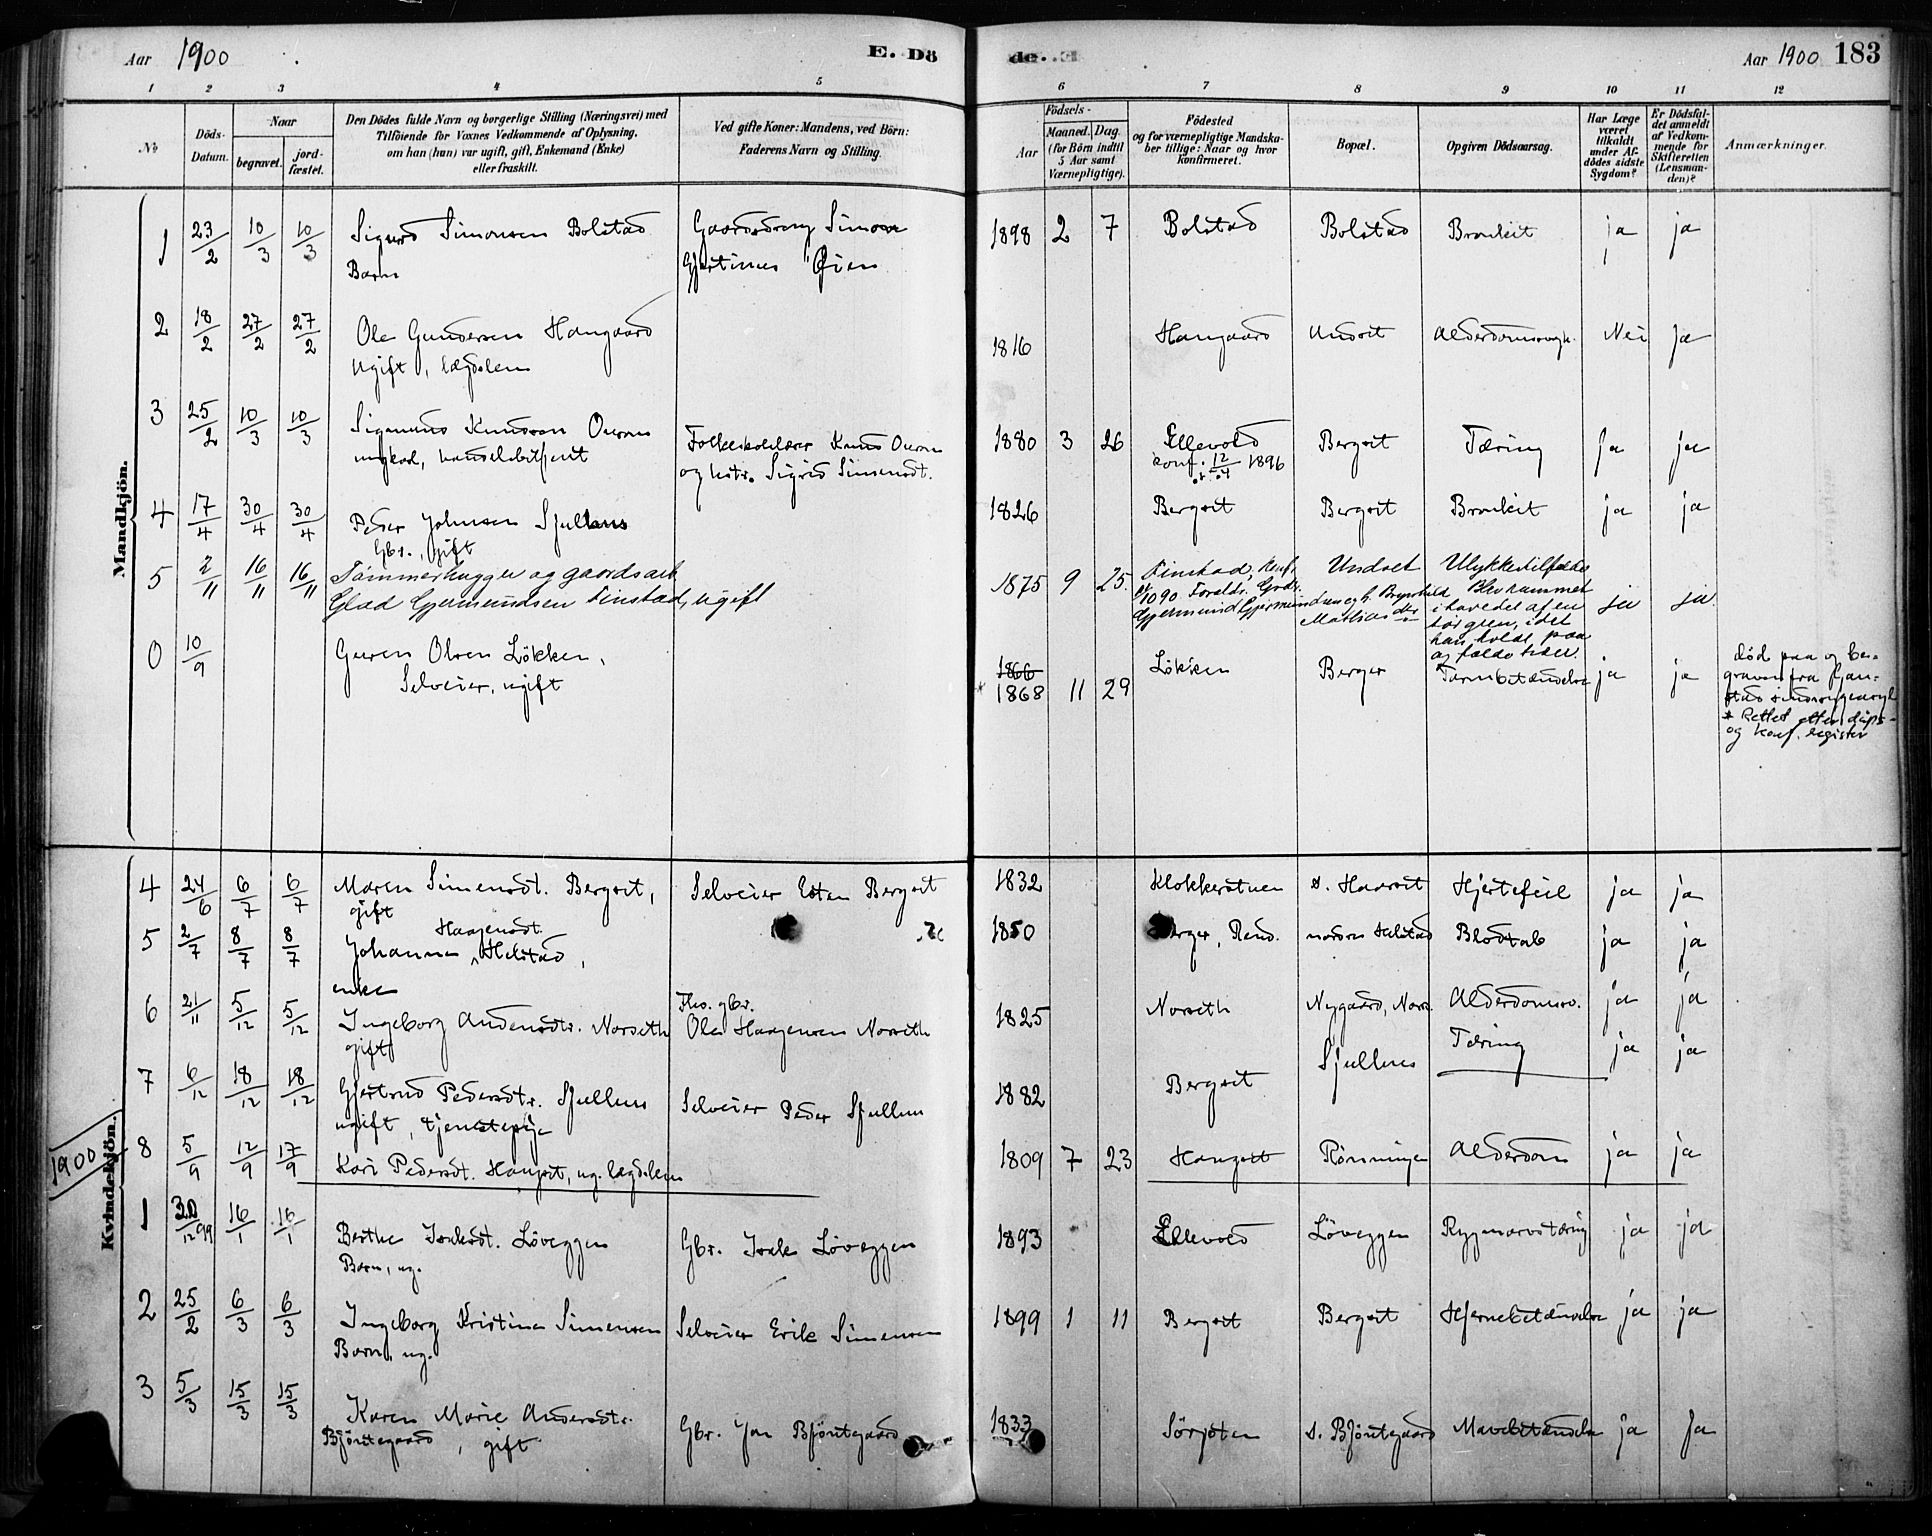 Aar 1900
E. Dö
de. E
Aar 1900 183
1 2 3 4 5 6 7 8 9 10 11 12
No
Döds-Datum.
Naar
begravet.
jord-fæstet.
Den Dödes fulde Navn og borgerlige Stilling (Næringsvei) med
Tilföiende for Voxnes Vedkommende af Oplysning,
om han (hun) var ugift, gift, Enkemand (Enke)
eller fraskilt.
Ved gifte Koner: Mandens, ved Börn:
Faderens Navn og Stilling.
Födsels-
Aar
Maaned. Dag.
(for Börn indtil
5 Aar samt
Værnepligtige).
Födested
og for værnepligtige Mandska-
ber tillige: Naar og hvor
Konfirmeret.
Bopæl.
Opgiven Dödsaarsag.
Har Læge
været
tilkaldt
under Af-
dödes sidste
Sygdom?
Er Dödsfal-
det anmeldt
af Vedkom-
mende for
Skifteretten
(Lensman-
den)?
Anmærkninger.
Mandkjön.
1 23/2 10/3 10/3 Sigurd Simonsen Bolstad Gaardsdreng Simon 1898 2 7 Bolstad Bolstad Bronkit ja ja
Barn Øien
2 18/2 27/2 27/2 Ole Gundersen Haugaard 1816 Haugaard Undset Nei Ja
Ugift, lægdslem
3 25/2 10/3 10/3 Sigmund Knudsen Ouren Folkeskolelærer Knud Ouren 1880 3 26 Ellevold Bergset Tæring Ja ja
ungkarl, handelsbetjent og hstr. Sigrid Simensdt. konf. 1896
4 17/4 30/4 30/4 Peder Johnsen Sjullens 1826 Bergset Bergset Bronkit ja ja
Gbr., gift
5 2/11 16/11 16/11 Tømmerhugger og gaardsarb. 1875 9 25. Finstad, konf. Undset Ulykkestilfælde ja ja.
Glad Gjermundsen Finstad, ugift Foreldr. Blev rammet
i hovedet af en
tör gren, idet
han holdt paa
og fælde træer.
0 10/9 Guren Olsen Løkken, 1866 1868 11 29 Løkken Berger Tarmbetændelse ja ja
Selveier, ugift
död paa og be-
graven fra
* Rettet efter daabs-
og konf. register
Kvindekjön.
4 24/6 6/7 6/7 Maren Simensdt. Bergset, Selveier Esten Bergset 1832 Klokkerstuen s. Haarset Hjertefeil ja ja
gift
Haagensdt.
5 2/7 8/7 8/7 Johanne Helstad, 1850 Berger, Rend. nordre Helstad Blodtab ja ja
enke
6 21/11 5/12 5/12 Ingeborg Andersdtr. Norseth Fhv. gbr. 1825 Norseth Nygaard, Nors. Alderdomssv. ja ja
gift Ole Haagensen Norseth
7 6/12 18/12 18/12 Gjertrud Pedersdtr. Sjullens Selveier Peder Sjullens 1882 Bergset Sjullens Tæring ja ja
ugift, tjenestepige
8 5/9 12/9 17/9 Kari Pedersdt. Hangset, ug. lægdslem 1809 7 23 Hangset Rønningen Alderdom ja ja
1900
1 30/12 99 16/1 16/1 Berthe Isaksdt. Løveggen Gbr. Isak Løveggen 1893 Ellevold Løveggen Rygmarvstæring ja ja
Barn, ug.
2 25/2 6/3 6/3 Ingeborg Kristine Simensen Selveier Erik Simensen 1899 1 11 Bergset Bergset Hjernebetændelse ja ja
Barn, ug.
3 5/3 15/3 15/3 Karen Marie Andersdtr. Gbr. Jon Bjöntegaard 1833 Sörjoten s. Bjöntegaard Mavebetændelse ja Ja
Bjöntegaard, gift